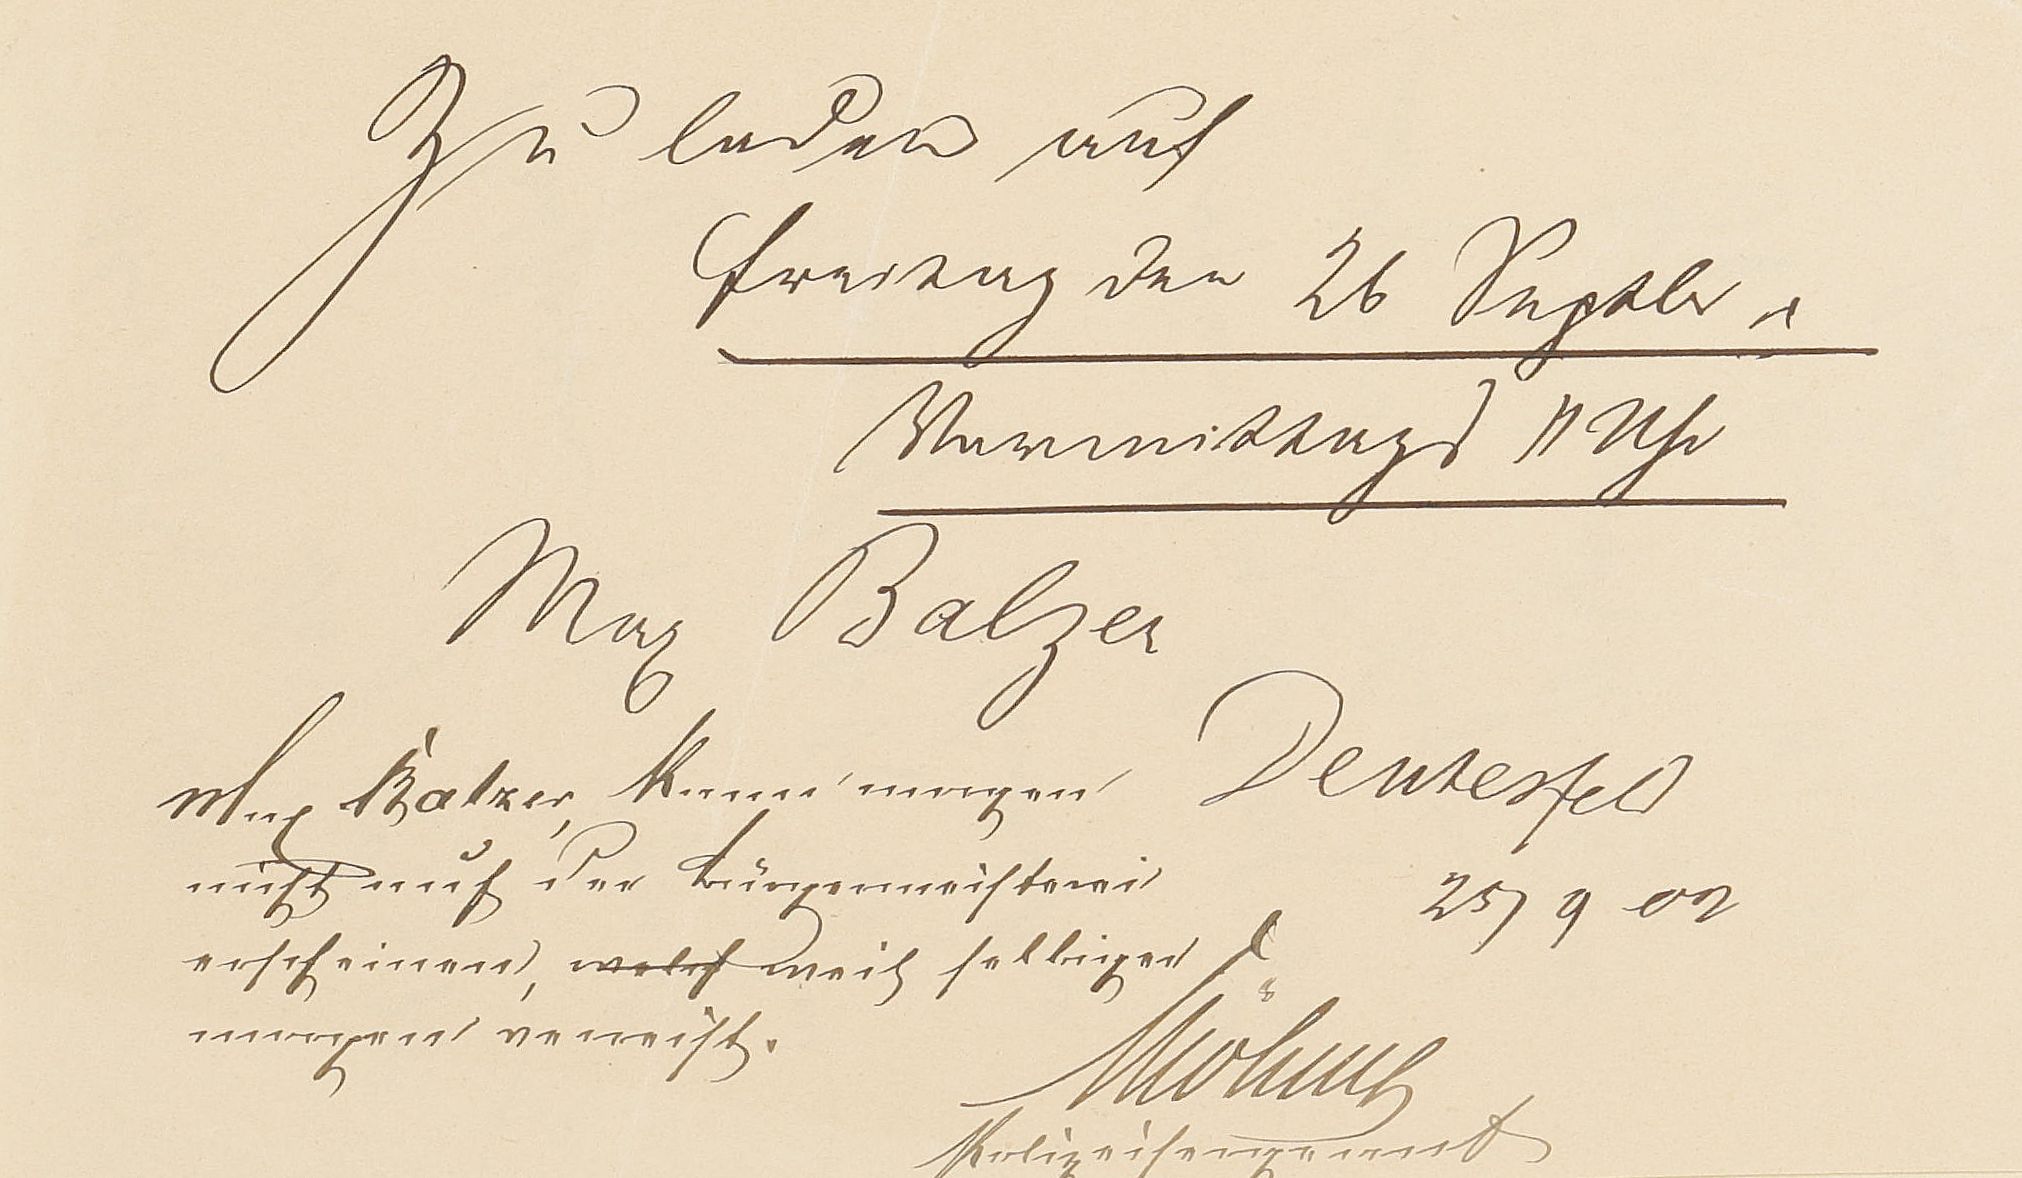 Zu laden auf
Freitag den 26 Septbr
Vormittags 11 Uhr
Max Balzer
Deutesfeld
25/9 02
Max Balzer, kann morgen
nicht auf der Bürgermeisterei
erscheinen, welch weil selbiger
morgen verreist.
Polizeisergeant